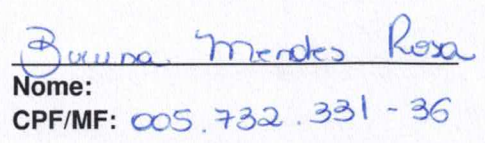 Bruna Mendes Rosa
Nome:
CPF/MF: 005.732.331-36